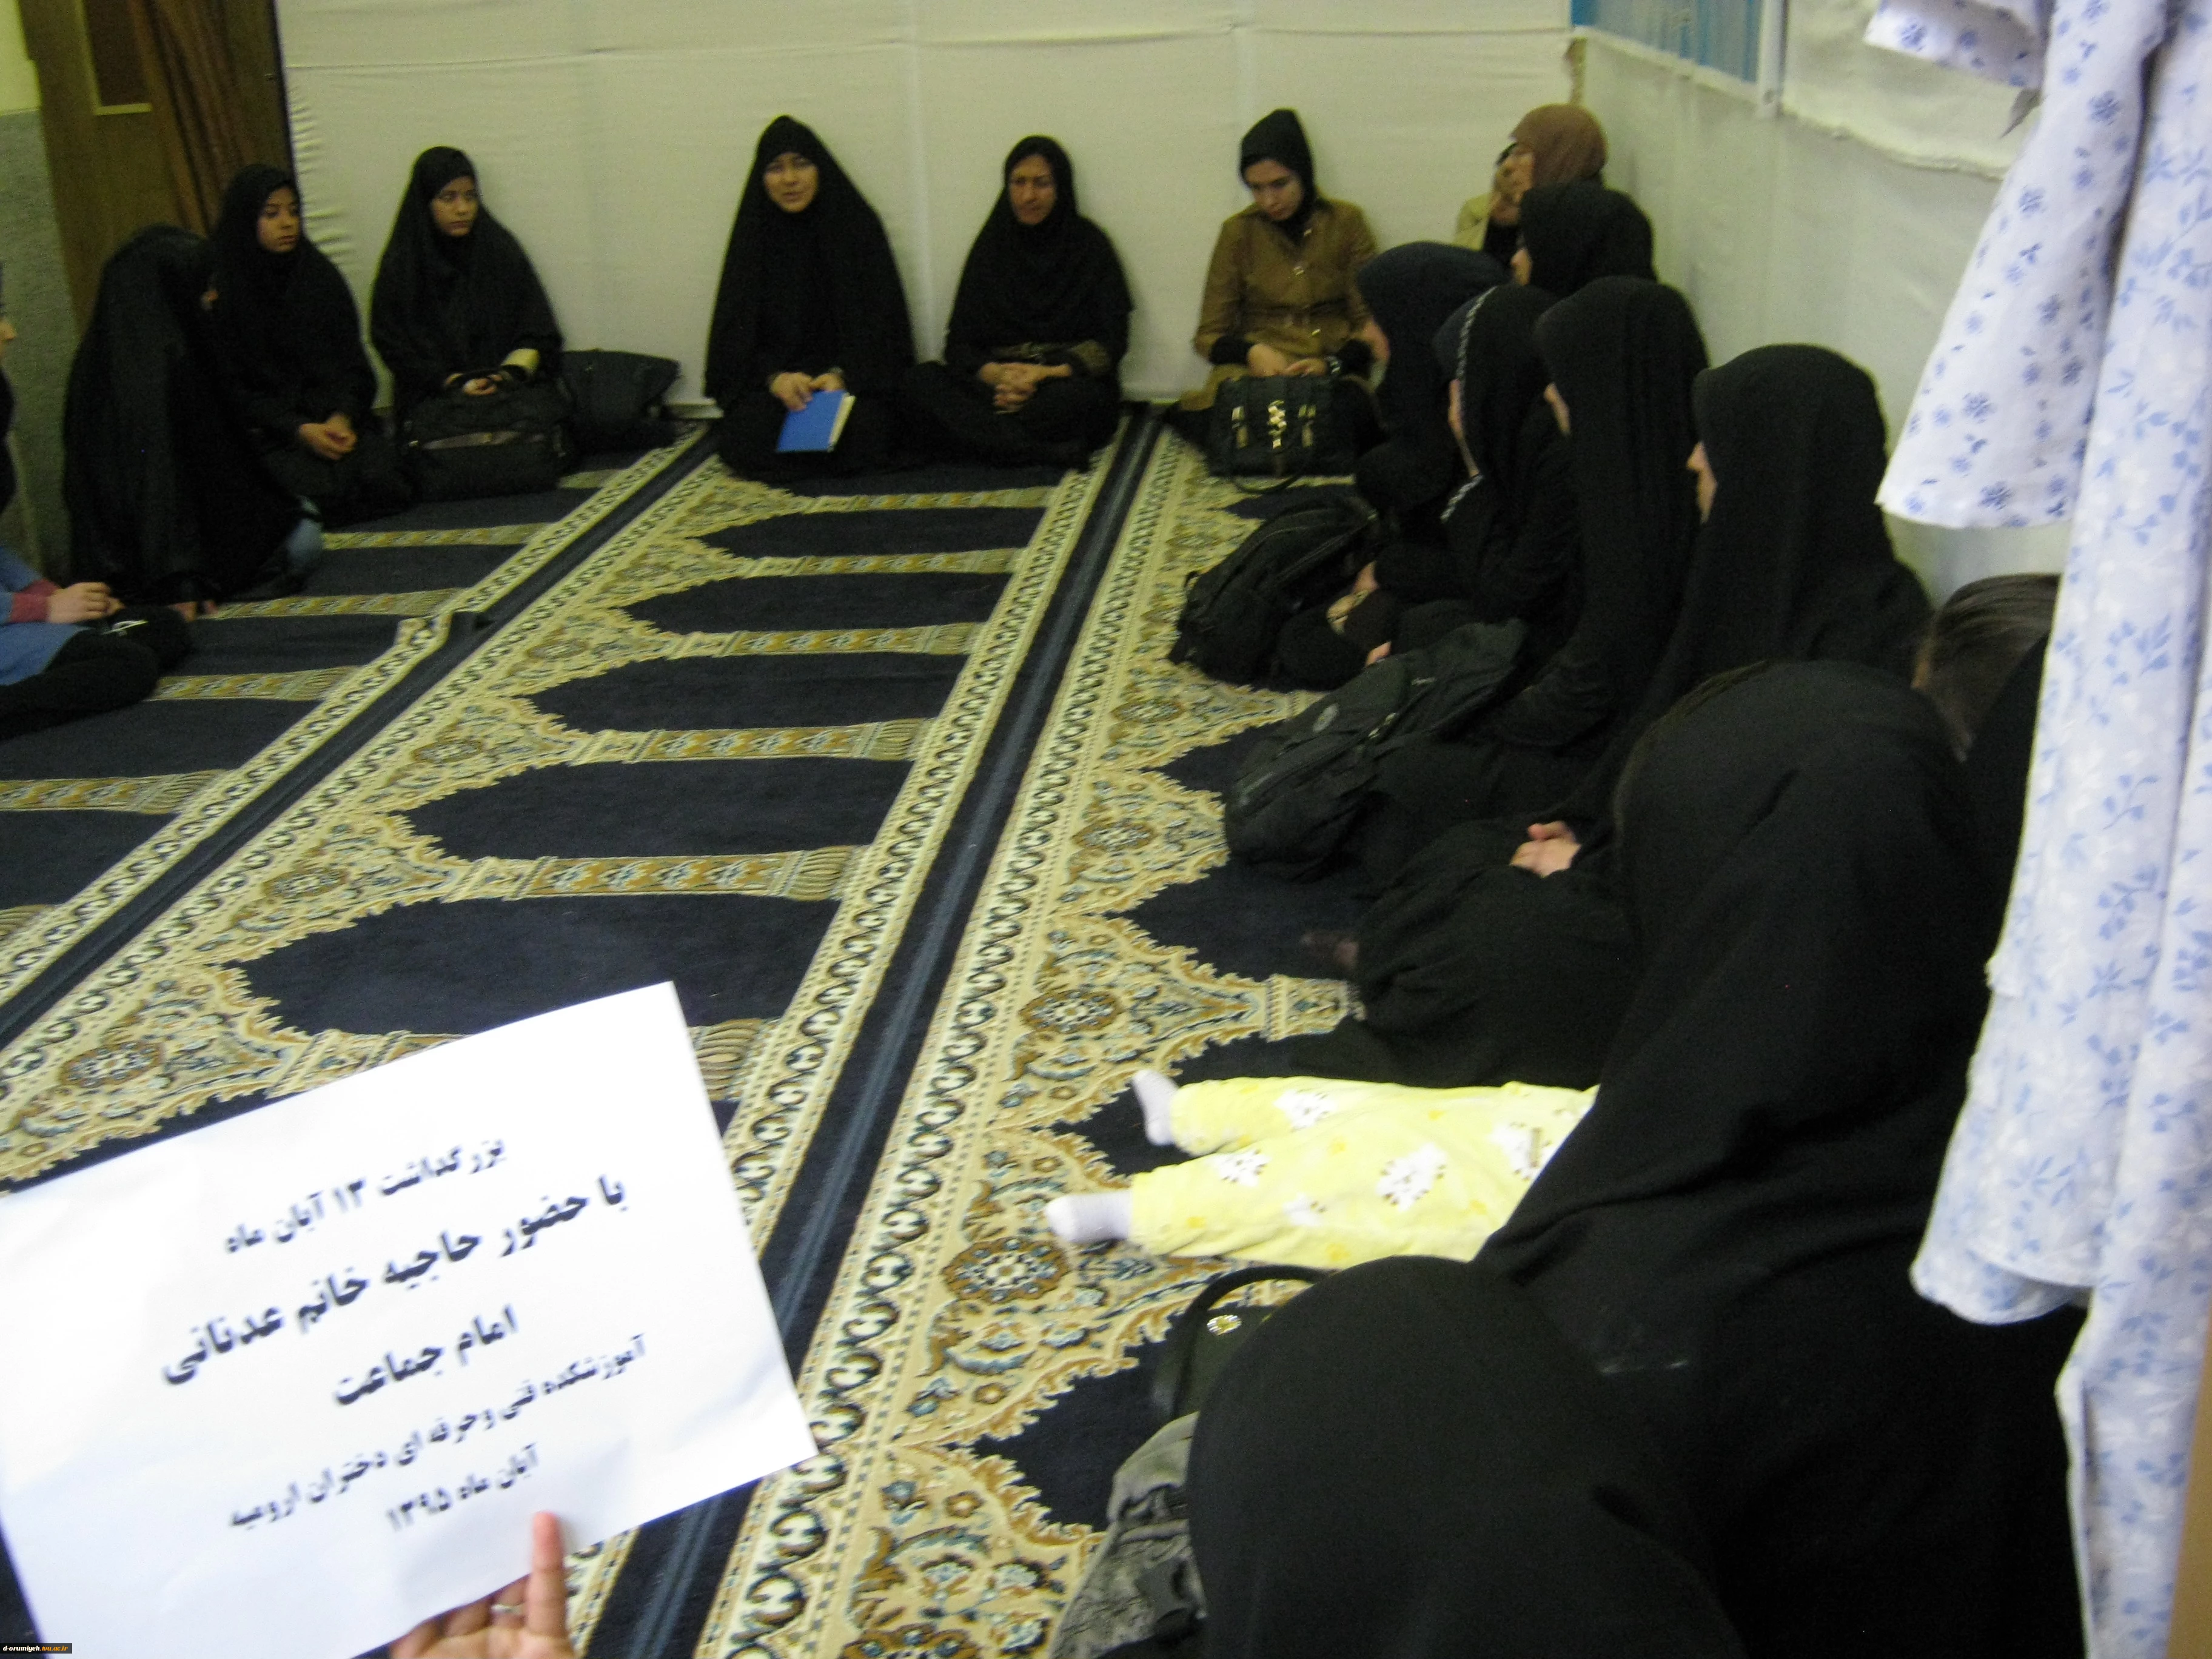 بزرگداشت ۱۳ آبان ماه
با حضور حاجیه خانم عدنانی
امام جماعت
آموزشکده فنی وحرفه ای دختران ارومیه
آبان ماه ۱۳۹۵
d-orumiyeh.tvu.ac.ir